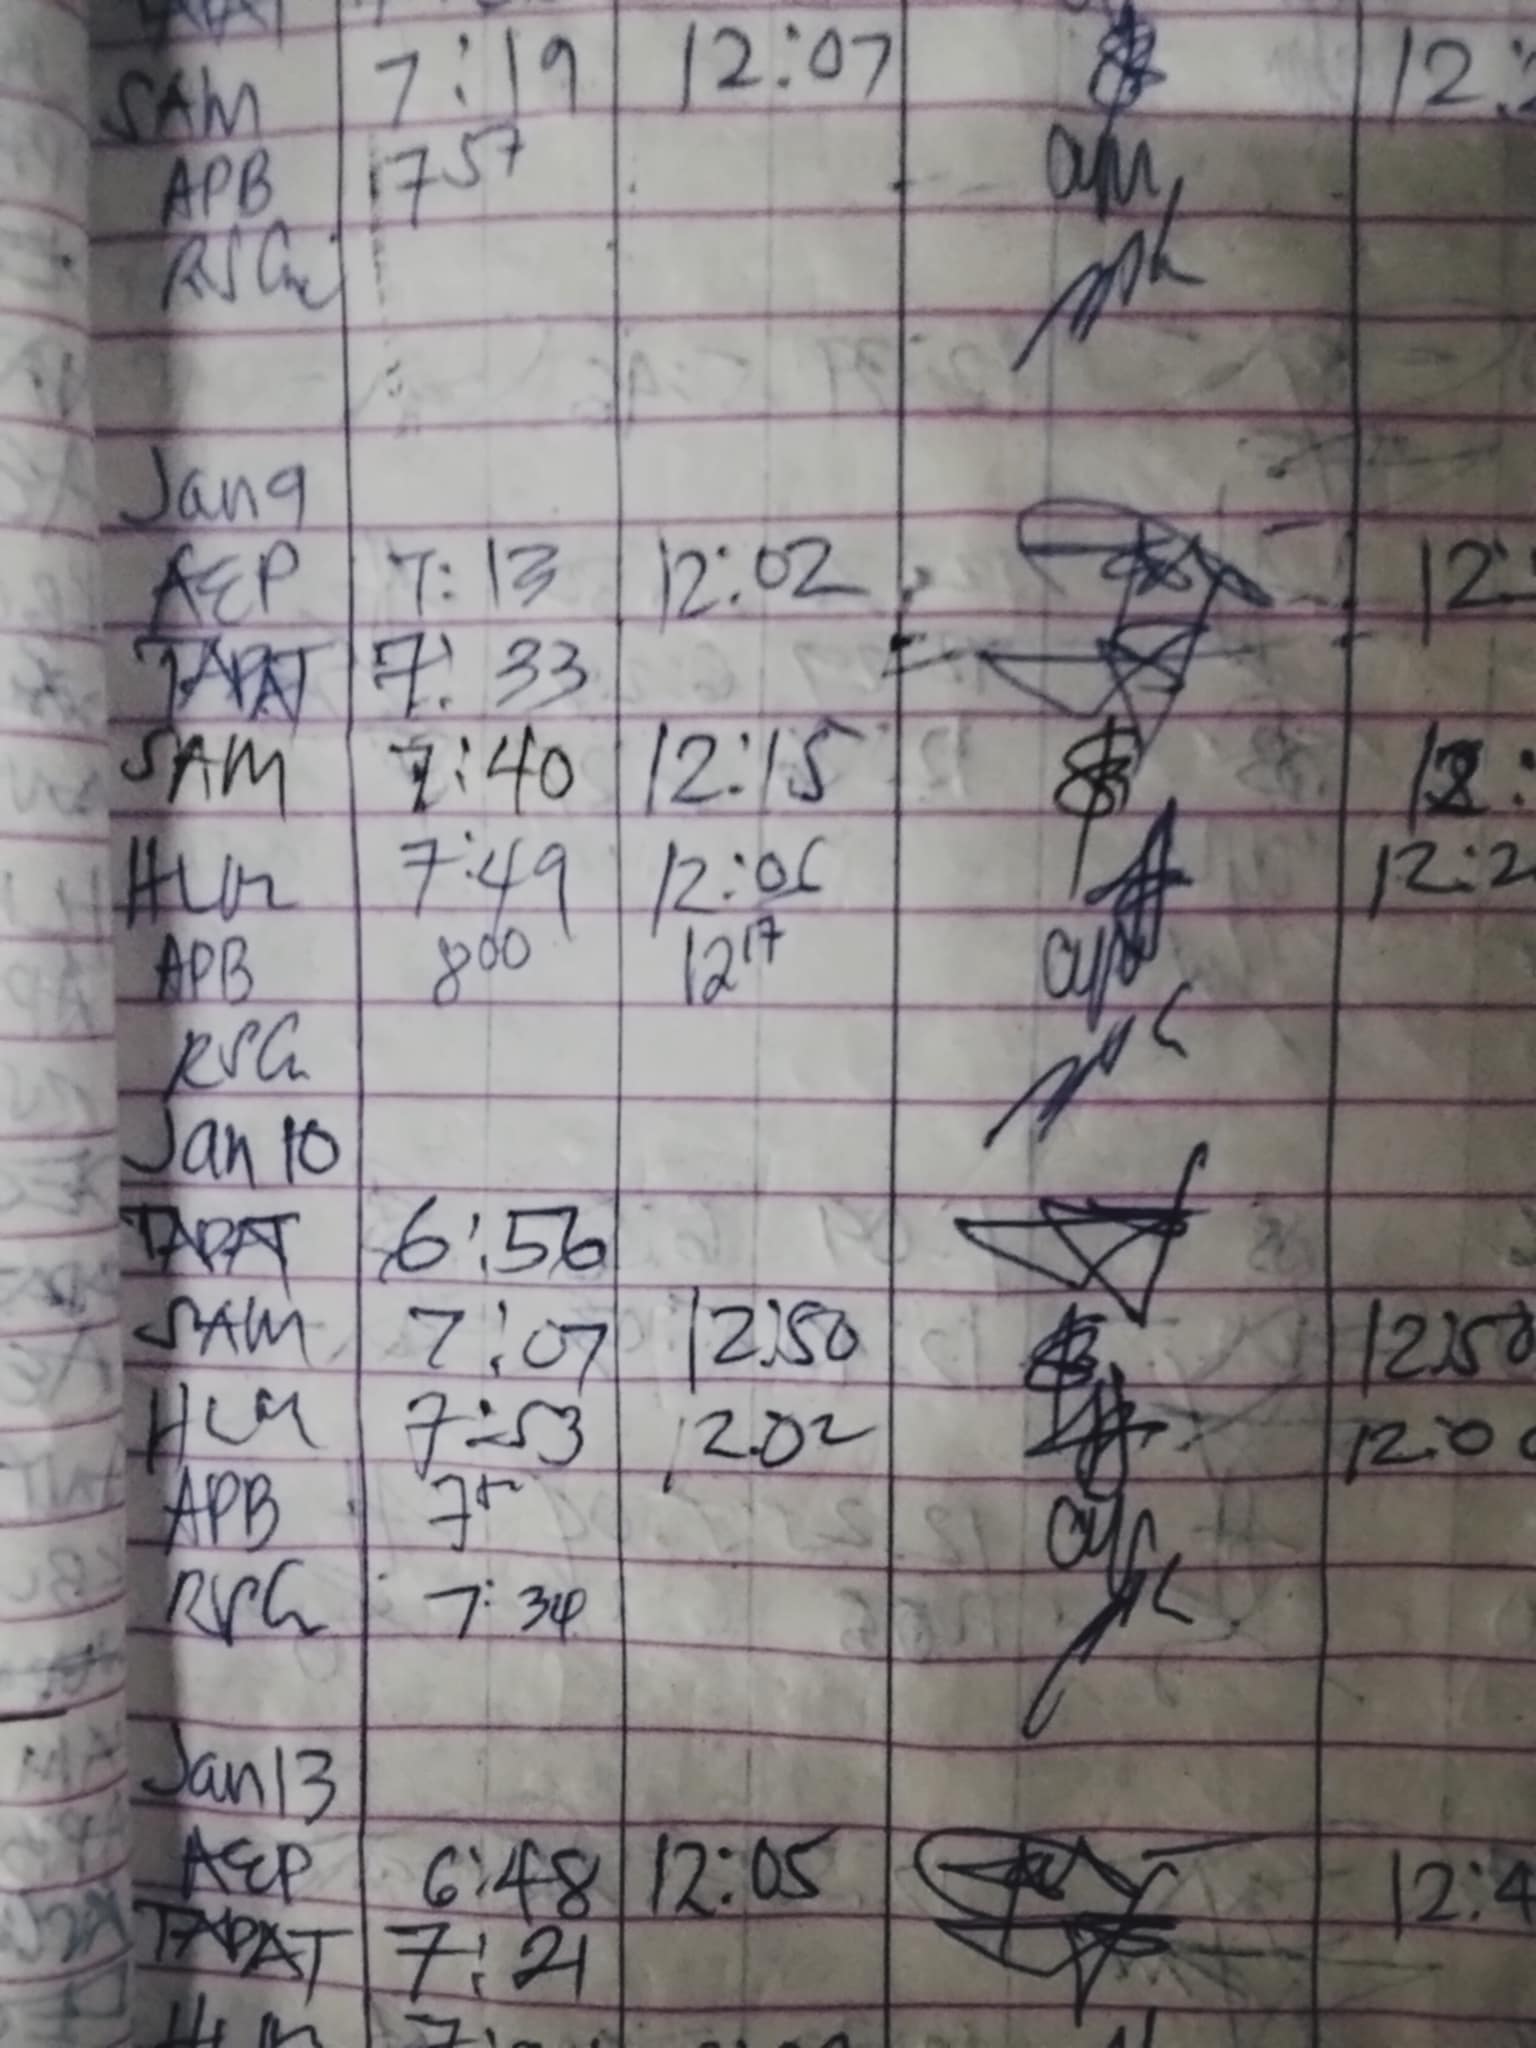 SAM 7:19 12:07 12:2
APB 7 57
RSG
Jan 9
AEP 7:13 12:02 12:
TAPAT 7:33
SAM 7:40 12:15 12:
HLM 7:49 12:06 12:2
APB 8 00 12 17
RSG
Jan 10
TAPAT 6:56
SAM 7:07 12:50 12:50
HLM 7:53 12:02 12:0
APB 7
RSG 7:34
Jan 13
AEP 6:48 12:05 12:4
TAPAT 7:21